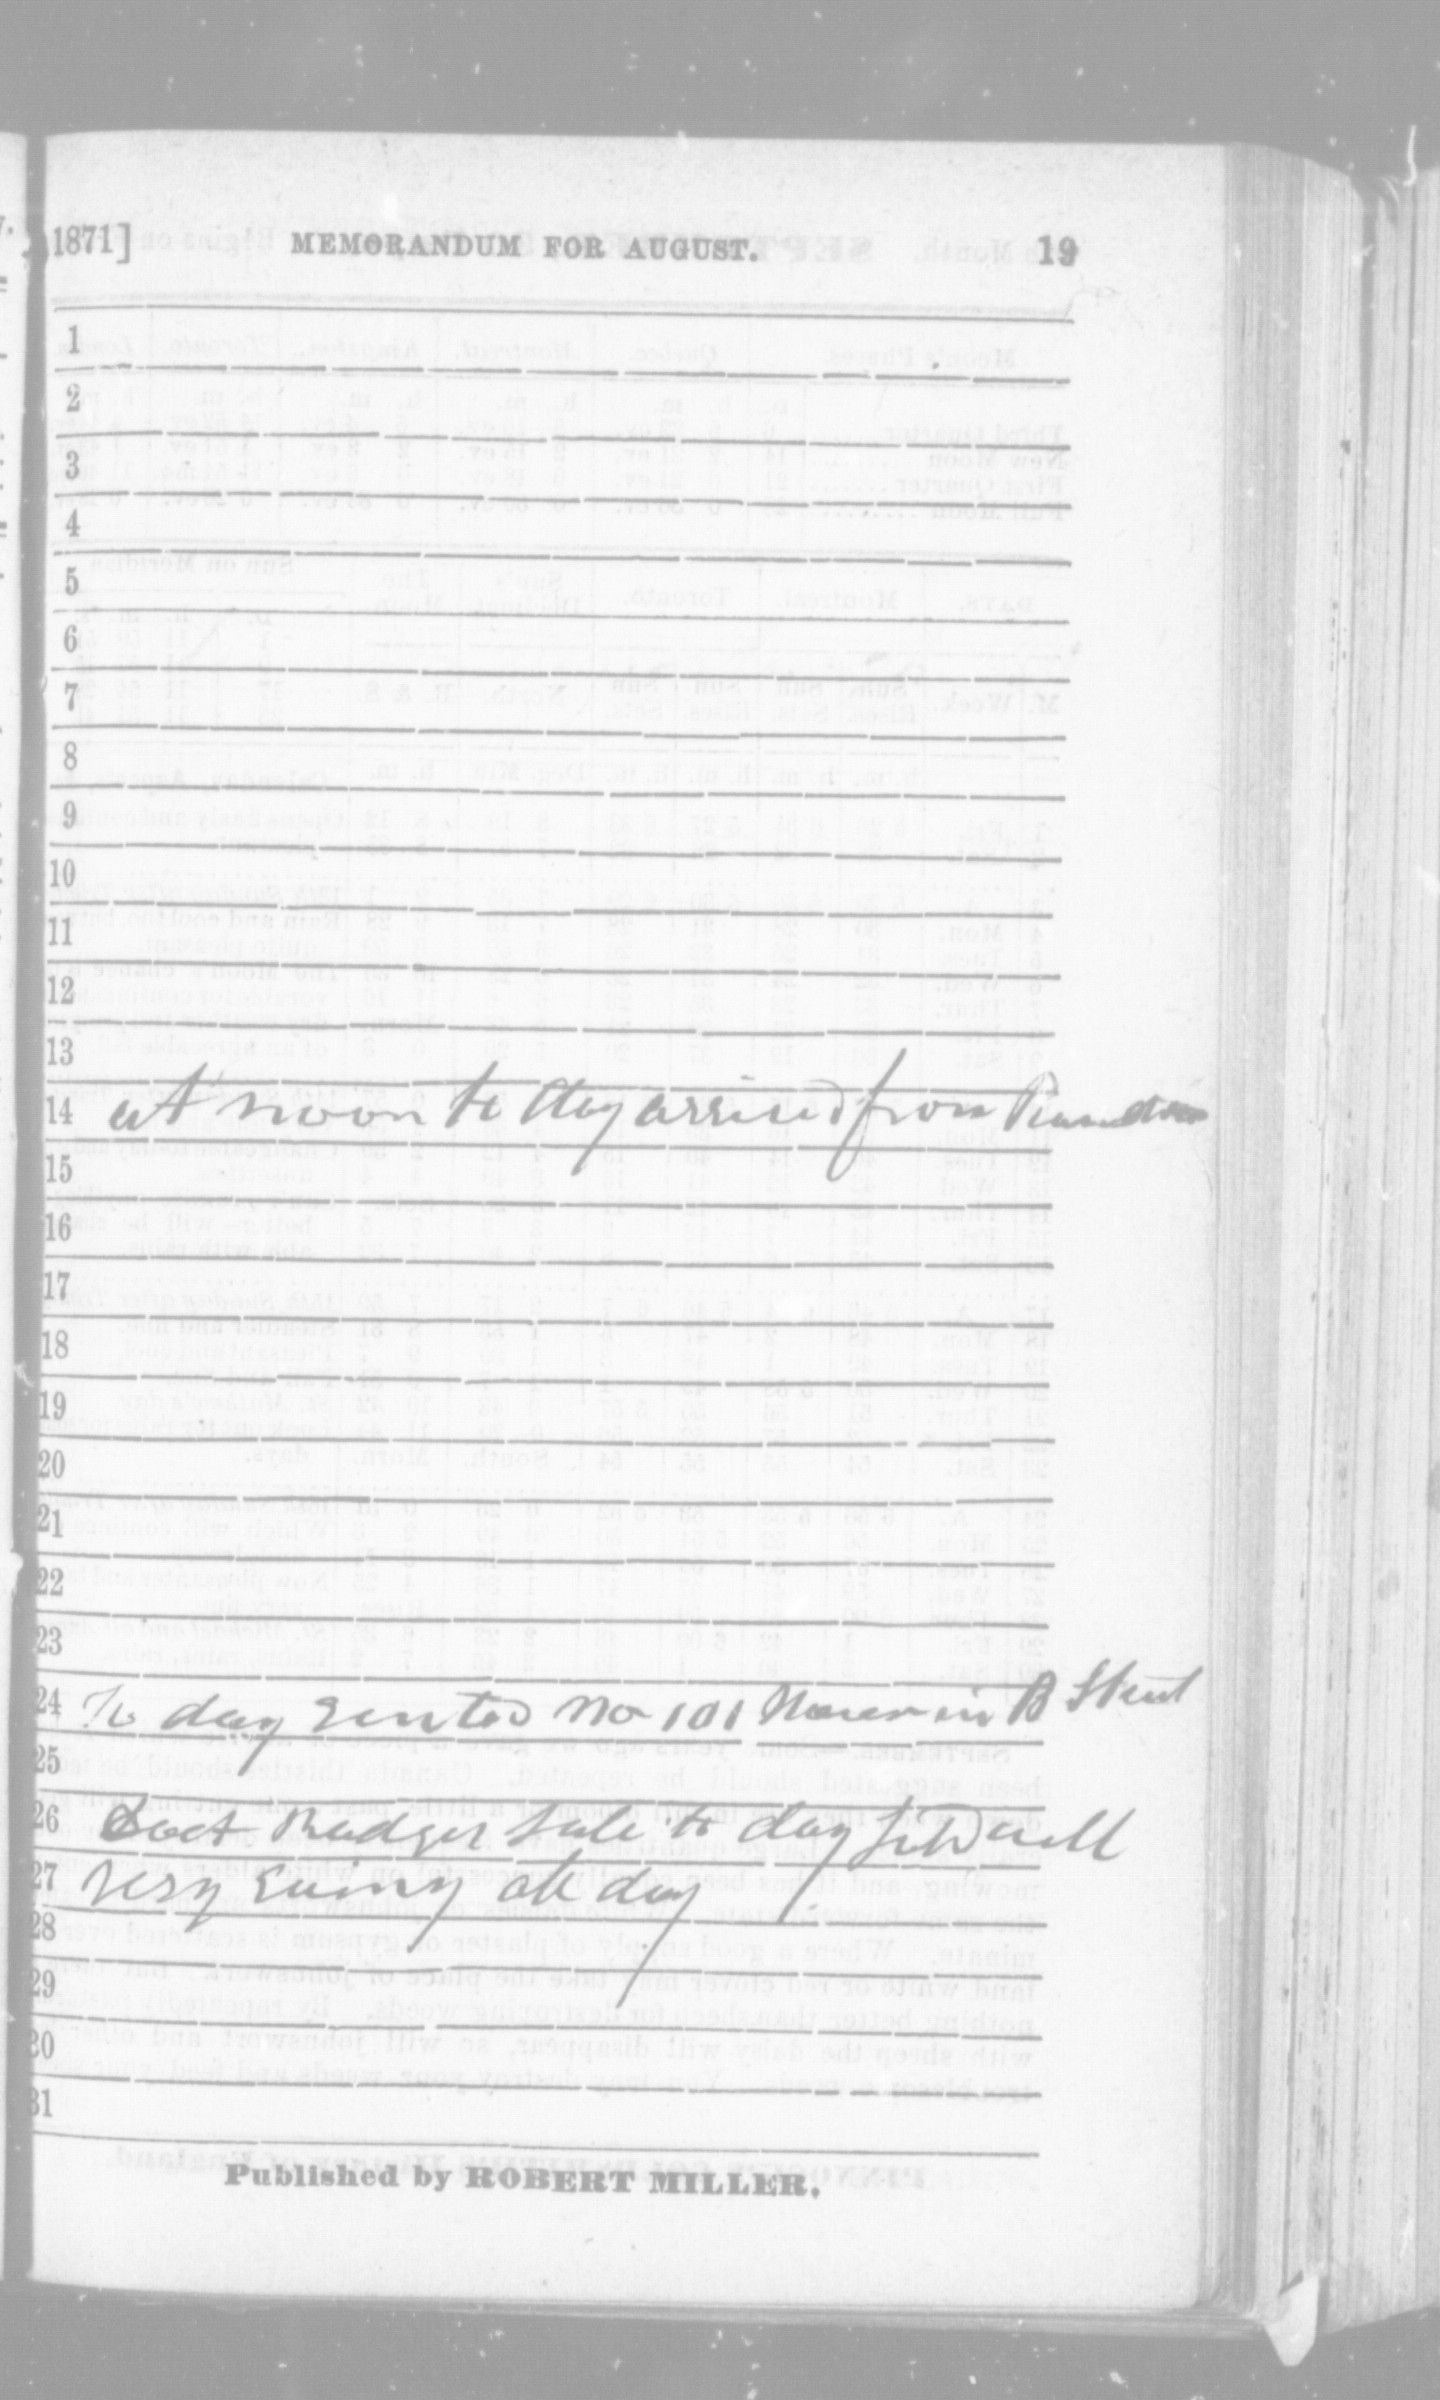 1871]
MEMORANDUM FOR AUGUST.
19
1
2
3
4
5
6
7
8
9
10
11
12
13
14 at noon to day arrived from
15
16
17
18
19
20
21
22
23
24 To day rented No 101 in B Street
25
26 Doct Badger Sale to day well
27 very rainy all day
28
29
30
31
Published by ROBERT MILLER.